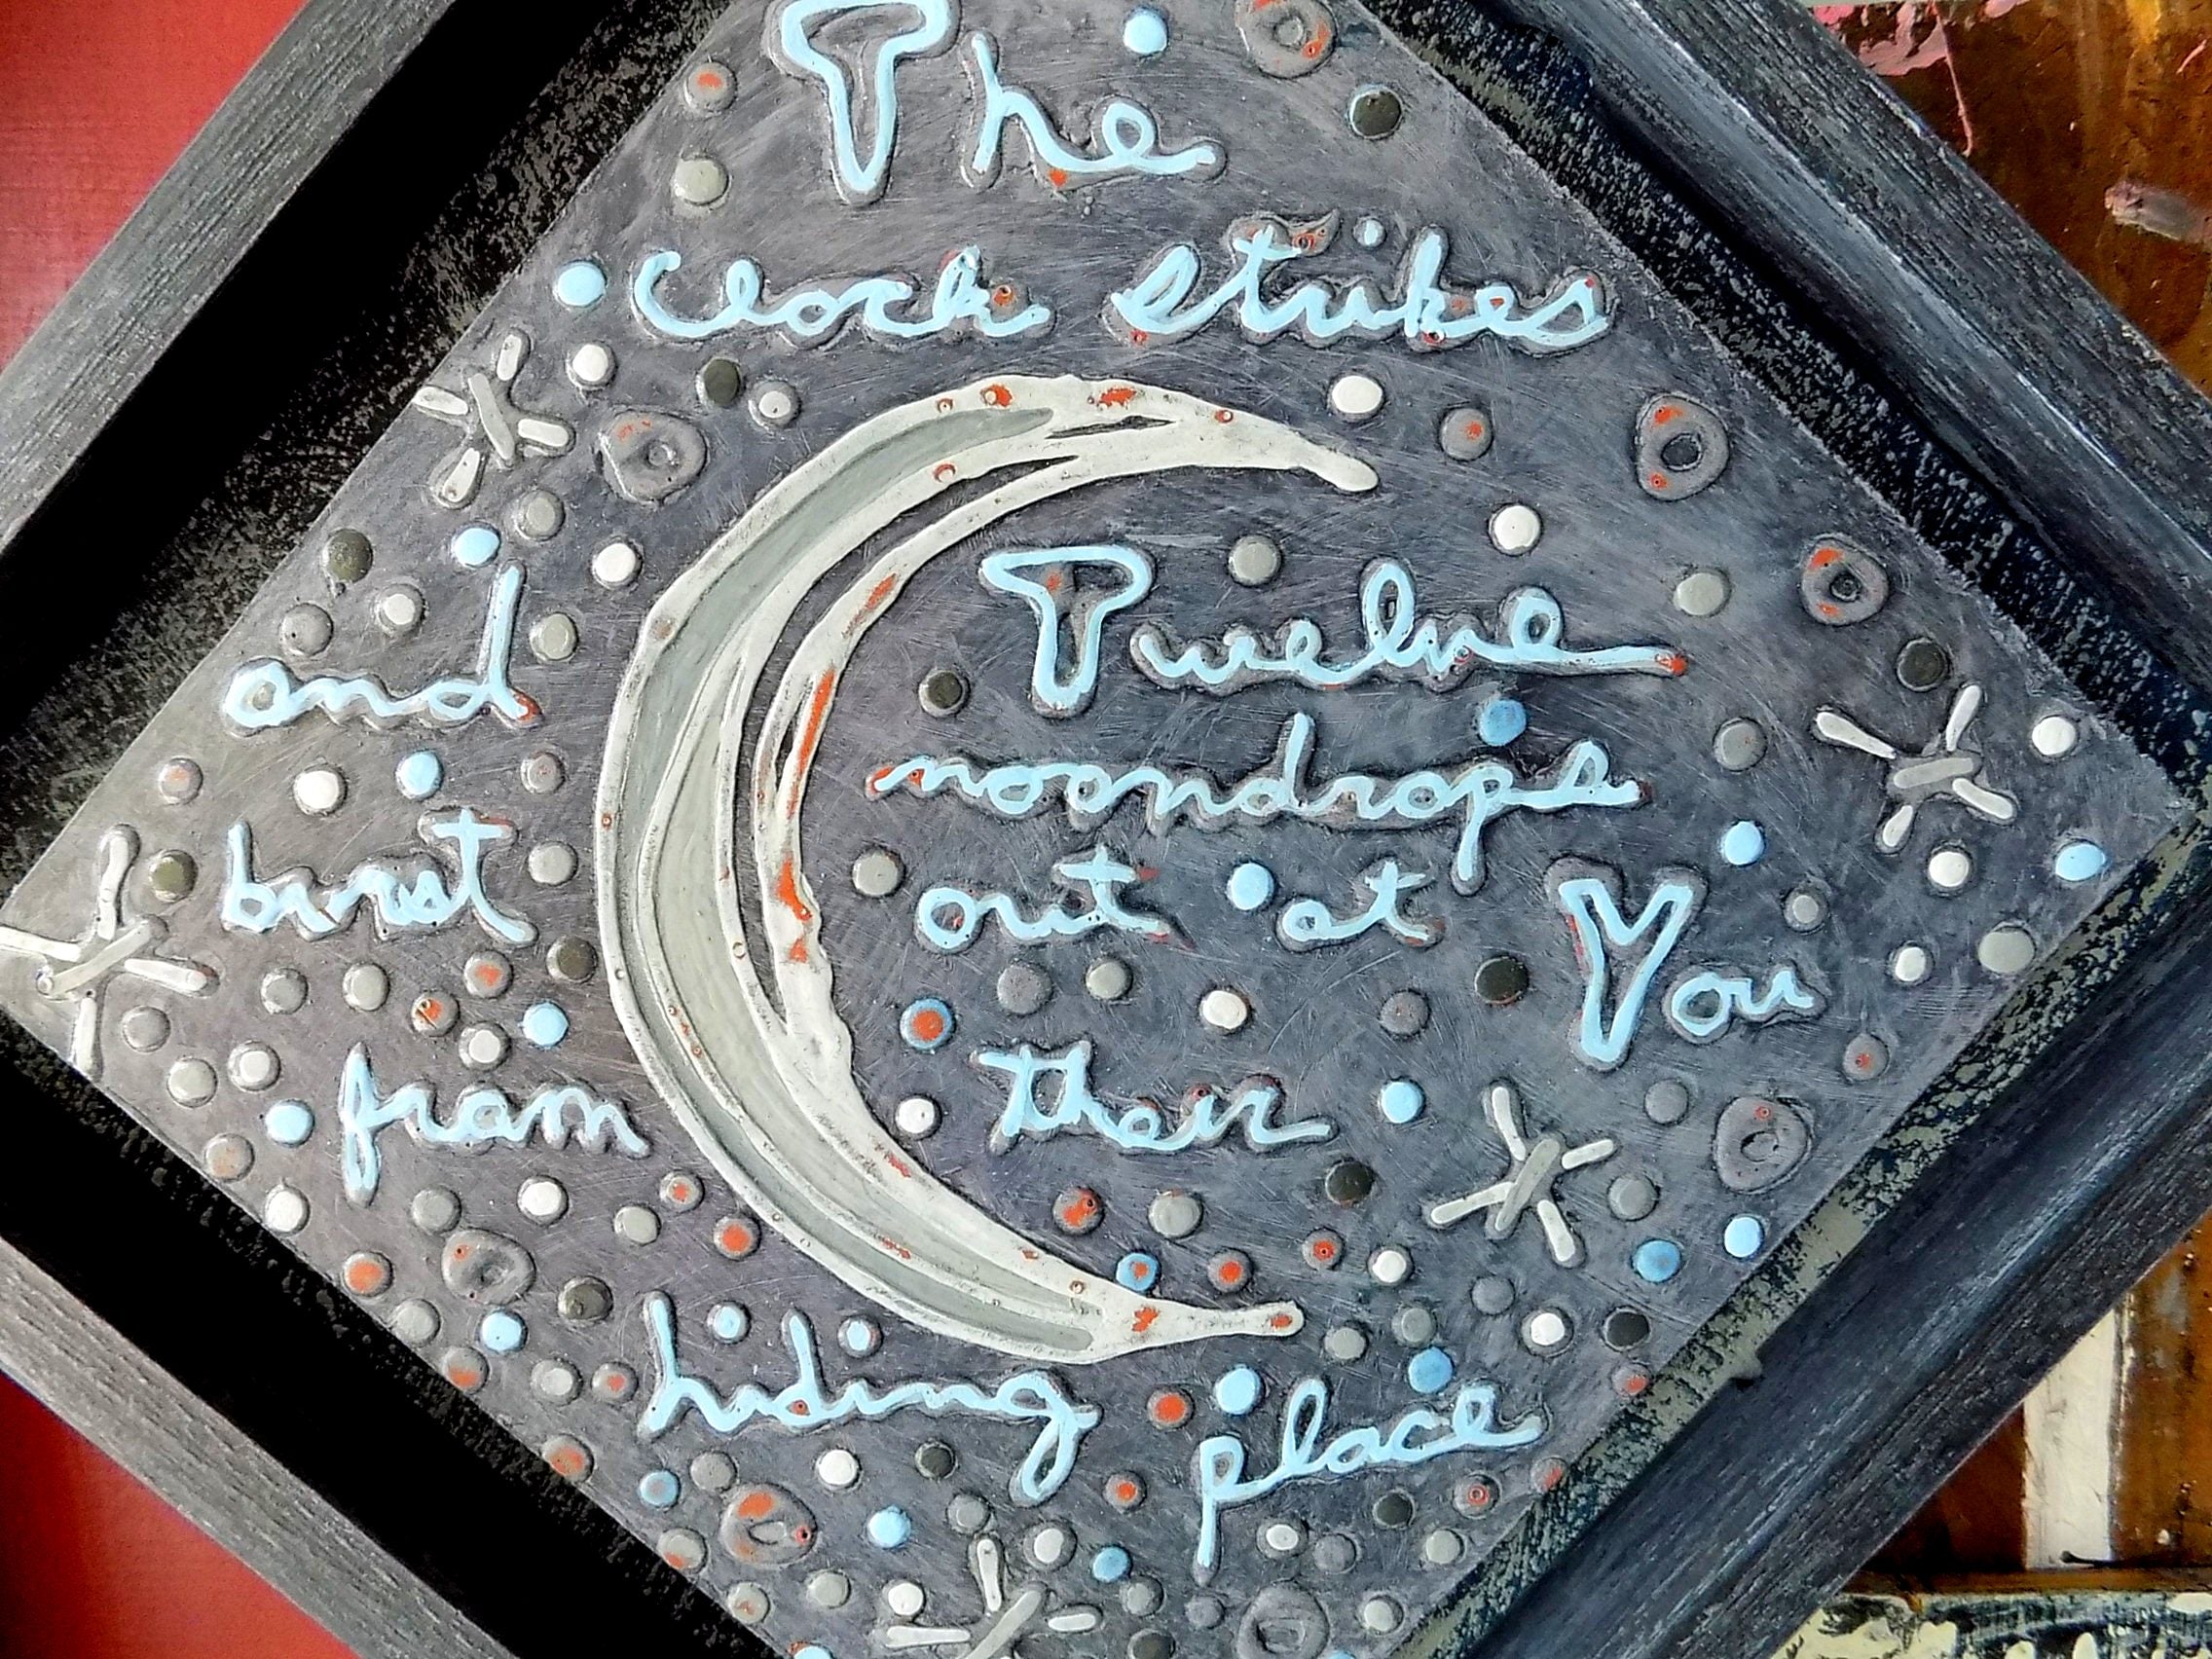 The
Clock strikes
and Twelve
moondrops
burst out at You
from their
hiding place